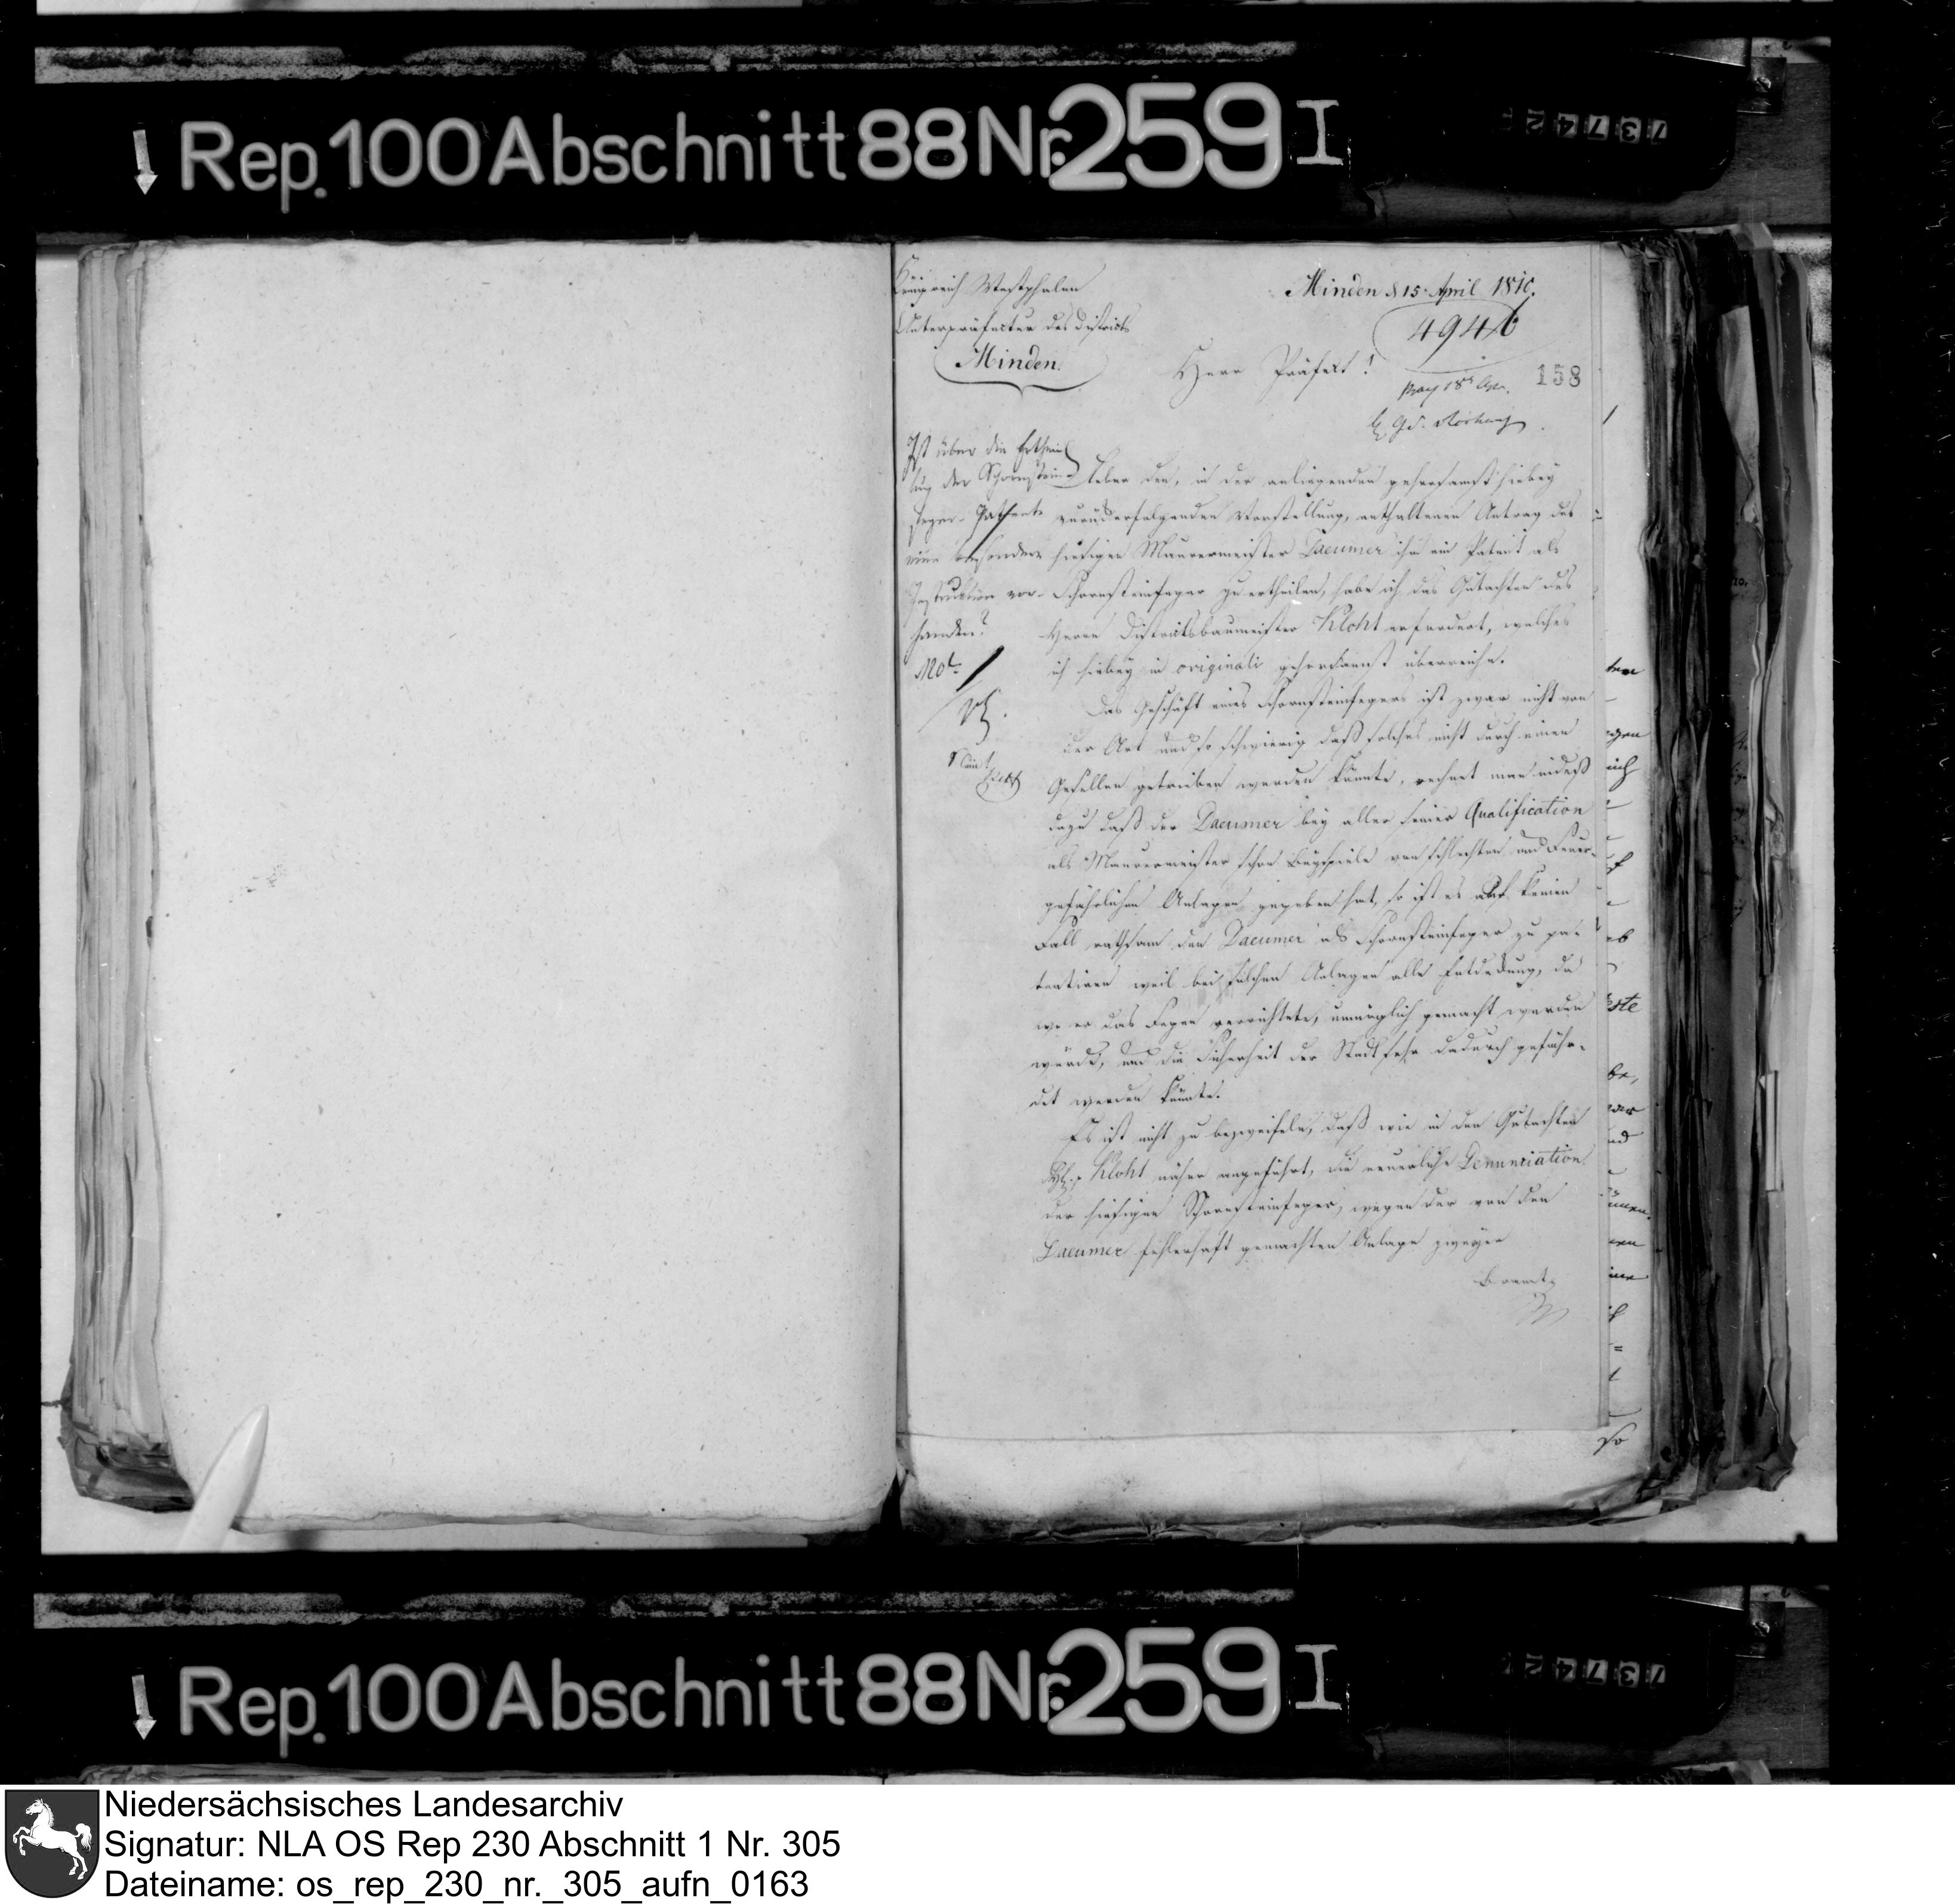 Rep. 100 Abschnitt 88 Nr. 259 I
73742
Königreich Westphalen
Unterpräfectur des Districts
Minden.
Minden d 15. April 1810.
4946
Herr Präfect!
158
Ist über die Erthei
lung der Schornstein-
feger-Patente
eine besondere
Instruktion vor-
handen?
Ueber den, in der anliegenden gehorsamst hiebey
zurückerfolgenden Vorstellung, enthaltenen Antrag des
hiesigen Maurermeister Daeumer ihm ein Patent als
Schornsteinfeger zu ertheilen, habe ich das Gutachten des
Herrn Districtsbaumeister Kloht erfordert, welches
ich hiebey in originali gehorsamst überreiche.
Das Geschäft eines Schornsteinfegers ist zwar nicht von
der Art und so schwierig daß solches nicht durch einen
Gesellen getrieben werden könnte, rechnet man indeß
dazu daß der Daeumer bey aller seiner Qualification
als Maurermeister schon Beyspiele von schlechten und Feuer-
gefährlichen Anlagen gegeben hat, so ist es auf keinen
Fall rathsam den Daeumer als Schornsteinfeger zu pa-
tentiren weil bei solchen Anlagen alle Entdeckung, da
wo er das Fegen verrichtete, unmöglich gemacht werden
würde, und die Sicherheit der Stadt sehr dadurch gefähr-
det werden könnte.
Es ist nicht zu bezweifeln, daß wie in den Gutachten
Kloht näher angeführt, die neuerliche Denunciation
der hiesigen Schornsteinfeger, wegen der von den
Daeumer fehlerhaft gemachten Anlage zweyer
Rep. 100 Abschnitt 88 Nr. 259 I
73742
Niedersächsisches Landesarchiv
Signatur: NLA OS Rep 230 Abschnitt 1 Nr. 305
Dateiname: os_rep_230_nr._305_aufn_0163